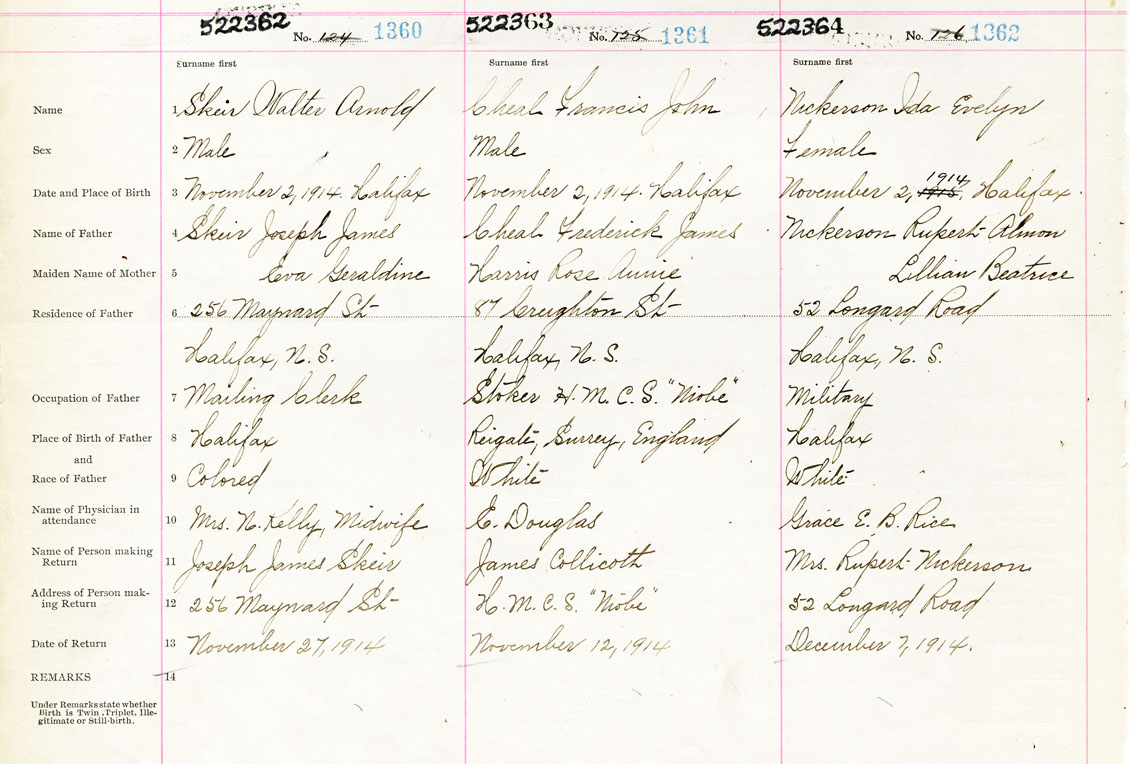 522362 522363 522364
No. 124 1360 No. 125 1361 No. 126 1362
Surname first Surname first Surname first
Name 1 Skeir Walter Arnold Cheal Francis John Nickerson Ida Evelyn
Sex 2 Male Male Female
1914
Date and Place of Birth 3 November 2, 1914. Halifax November 2, 1914. Halifax November 2, 1915, Halifax.
Name of Father 4 Skeir Joseph James Cheal Frederick James Nickerson Rupert Almon
Maiden Name of Mother 5 Eva Geraldine Harris Rose Annie Lillian Beatrice
Residence of Father 6 256 Maynard St 87 Creighton St 52 Longard Road
Halifax, N.S. Halifax, N.S. Halifax, N.S.
Occupation of Father 7 Mailing Clerk Stoker H.M.C.S. "Niobe" Military
Place of Birth of Father 8 Halifax Reigate, Surrey, England Halifax
and
Race of Father 9 Colored White White
Name of Physician in
attendance 10 Mrs. N. Kelly, Midwife E. Douglas Grace E. B. Rice
Name of Person making
Return 11 Joseph James Skeir James Collicott Mrs. Rupert Nickerson
Address of Person mak-
ing Return 12 256 Maynard St H.M.C.S. "Niobe" 52 Longard Road
Date of Return 13 November 27, 1914 November 12, 1914 December 7, 1914.
REMARKS 14
Under Remarks state whether
Birth is Twin, Triplet, Ille-
gitimate or Still-birth.